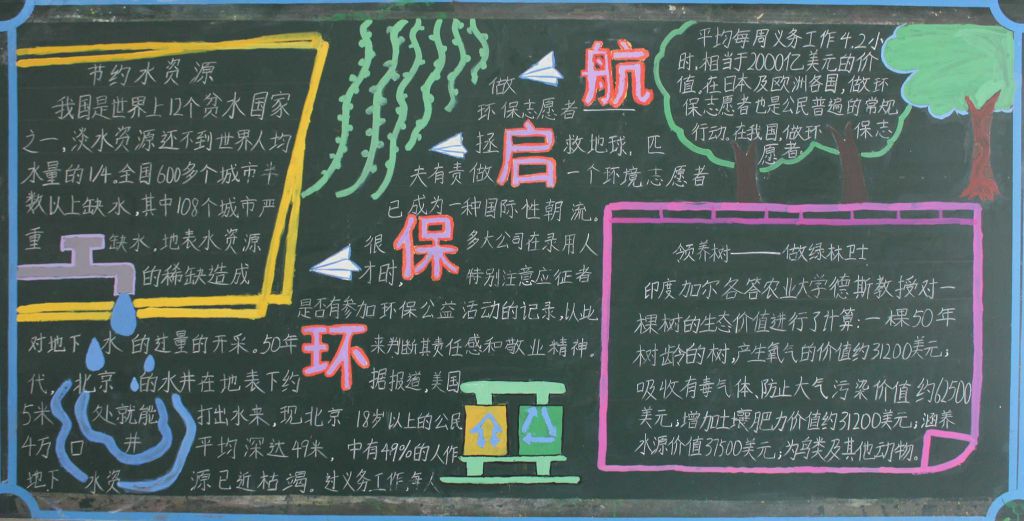 节约水资源
我国是世界上12个贫水国家
之一，淡水资源还不到世界人均
水量的1/4。全国600多个城市半
数以上缺水，其中108个城市严
重缺水，地表水资源
的稀缺造成
对地下水的过量的开采。50年
代，北京的水井在地表下约
5米处就能打出水来，现北京
4万口井平均深达49米，
地下水资源已近枯竭。
环保启航
做
环保志愿者
拯救地球，匹
夫有责做一个环境志愿者
已成为一种国际性潮流。
很多大公司在录用人
才时，特别注意应征者
是否有参加环保公益活动的记录，从此
来判断其责任感和敬业精神。
据报道，美国
18岁以上的公民
中有49%的人作
过义务工作，每人
平均每周义务工作4.2小
时，相当于2000亿美元的价
值，在日本及欧洲各国，做环
保志愿者也是公民普遍的常规
行动。在我国，做环保志
愿者。
领养树——做绿林卫士
印度加尔各答农业大学德斯教授对一
棵树的生态价值进行了计算：一棵50年
树龄的树，产生氧气的价值约31200美元；
吸收有毒气体、防止大气污染价值约62500
美元；增加土壤肥力价值约31200美元；涵养
水源价值37500美元；为鸟类及其他动物。